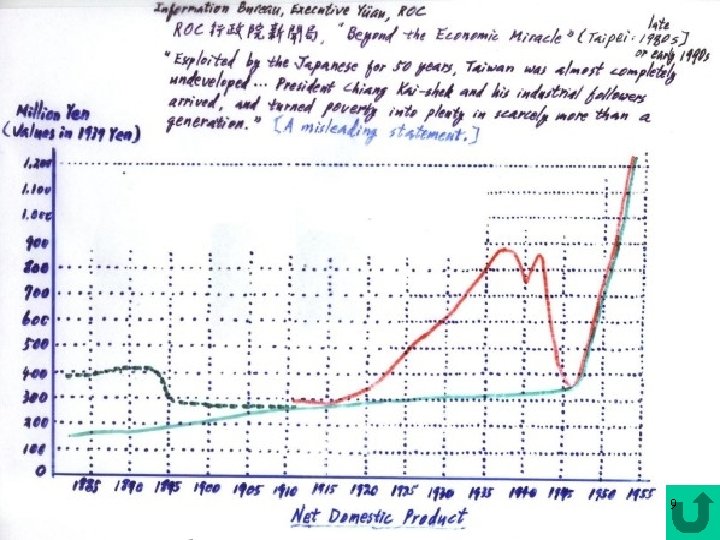 Information Bureau, Executive Yüan, ROC
ROC 行政院新聞局, "Beyond the Economic Miracle" (Taipei: late 1980s]
or early 1990s
"Exploited by the Japanese for 50 years, Taiwan was almost completely
undeveloped... President Chiang Kai-shek and his industrial followers
arrived, and turned poverty into plenty in scarcely more than a
generation." [A misleading statement.]
Million Yen
(Values in 1937 Yen)
1,200
1,100
1,000
900
800
700
600
500
400
300
200
100
0
1885 1890 1895 1900 1905 1910 1915 1920 1925 1930 1935 1940 1945 1950 1955
Net Domestic Product
9